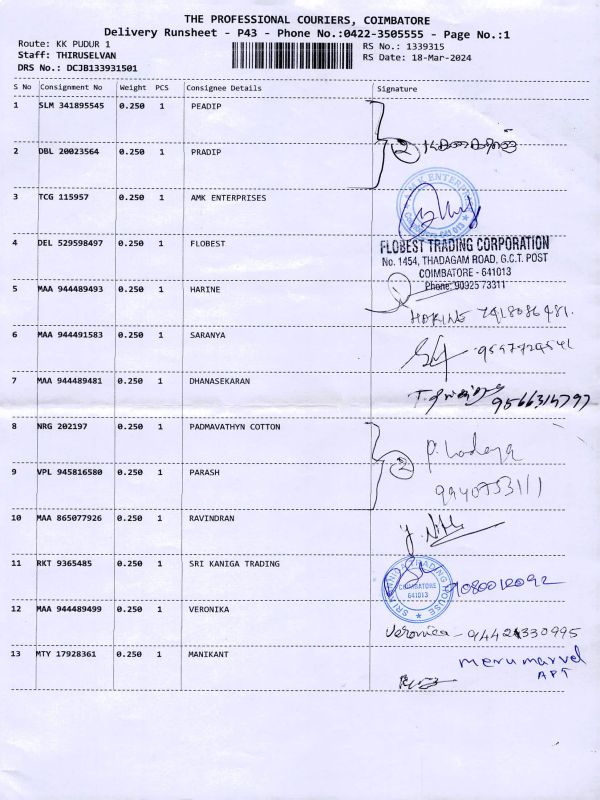 THE PROFESSIONAL COURIERS, COIMBATORE
Delivery Runsheet - P43 - Phone No.:0422-3505555 - Page No.:1
Route: KK PUDUR 1
RS No.: 1339315
Staff: THIRUSELVAN
RS Date: 18-Mar-2024
DRS No.: DCJB133931501
S No Consignment No Weight PCS Consignee Details Signature
1 SLM 341895545 0.250 1 PEADIP
2
2 DBL 20023564 0.250 1 PRADIP
3 TCG 115957 0.250 1 AMK ENTERPRISES
4 DEL 529598497 0.250 1 FLOBEST
FLOBEST TRADING CORPORATION
No. 1454, THADAGAM ROAD, G.C.T. POST
COIMBATORE - 641013
Phone: 90925 73311
5 MAA 944489493 0.250 1 HARINE
HARINE 7418086481.
6 MAA 944491583 0.250 1 SARANYA
7 MAA 944489481 0.250 1 DHANASEKARAN
9566314797
8 NRG 202197 0.250 1 PADMAVATHYN COTTON
2
9 VPL 945816580 0.250 1 PARASH
10 MAA 865077926 0.250 1 RAVINDRAN
11 RKT 9365485 0.250 1 SRI KANIGA TRADING
COIMBATORE
641013
9080012092
12 MAA 944489499 0.250 1 VERONIKA
Veronica - 9442330995
13 MTY 17928361 0.250 1 MANIKANT
meru marvel
APT